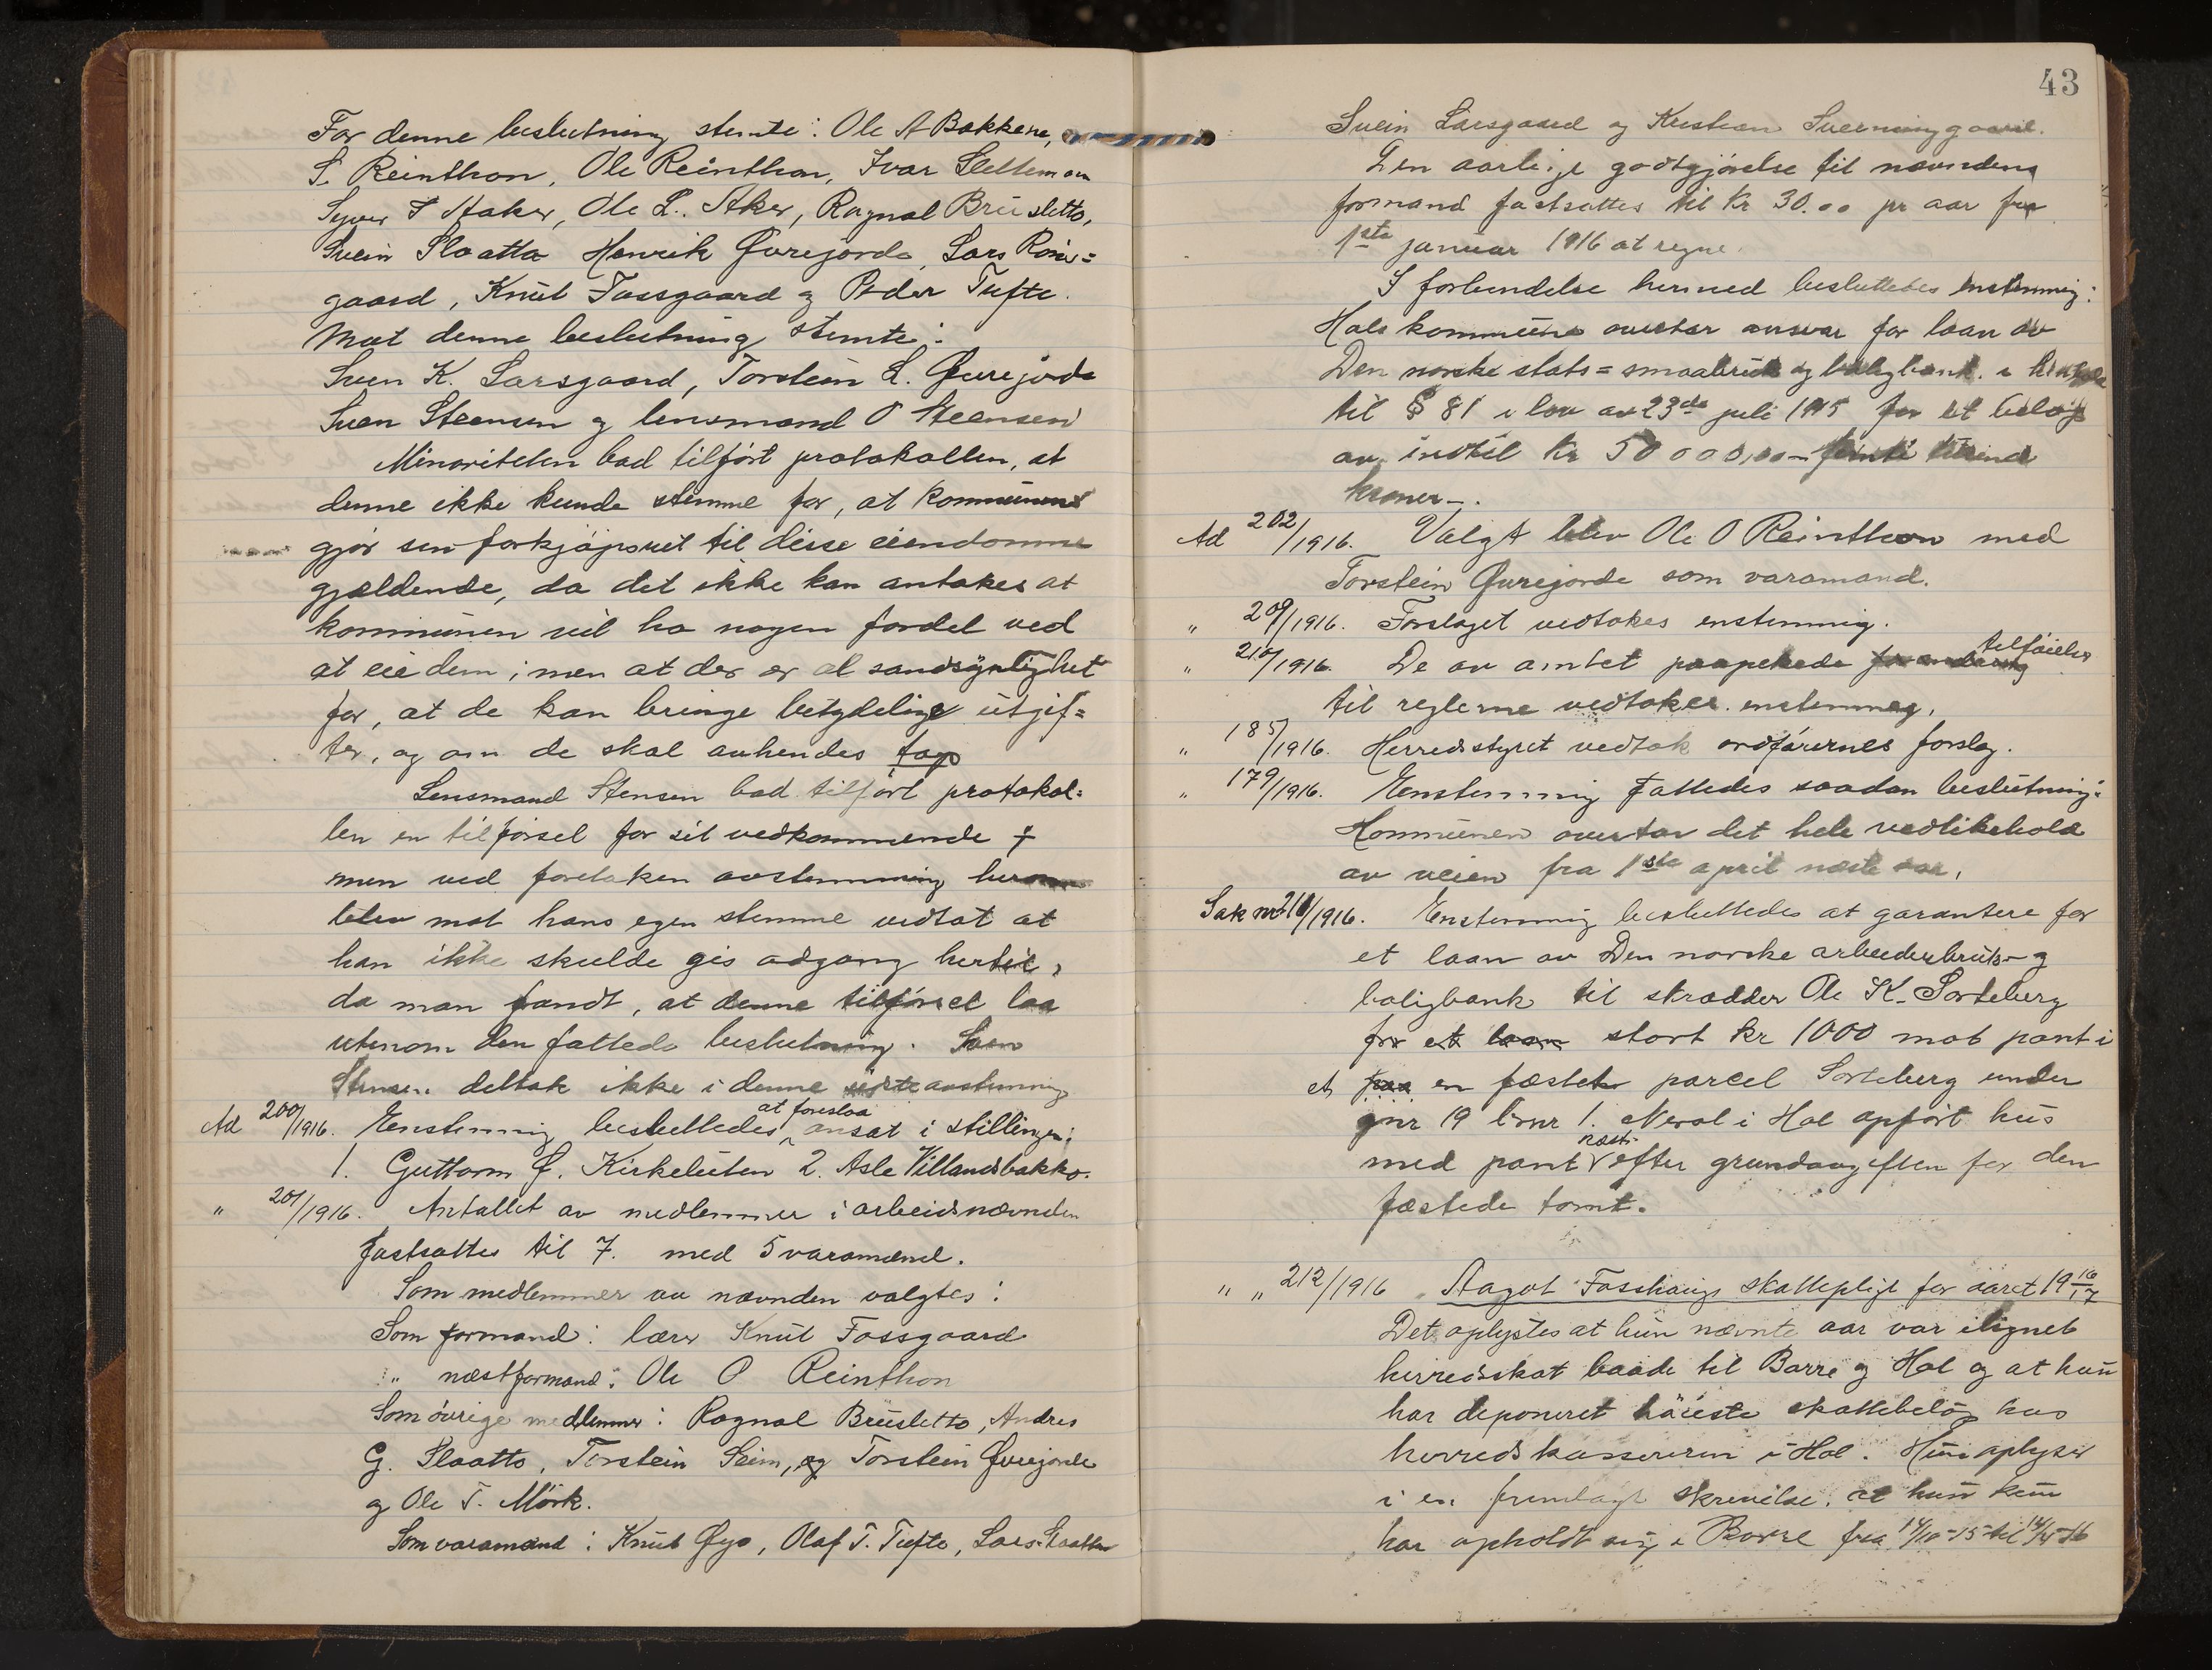 For denne beslutning stemte: Ole A Bakkene,
S. Reinthon, Ole Reinthon, Ivar Slettemoen
Syver T Aaker, Ole L. Aker, Ragnal Brusletto,
Svein Slaatta Henrik Øvrejorde, Lars Rein=
gaard, Knut Fossgaard og Peder Tufte.
Mot denne beslutning stemte:
Sven K. Larsgaard, Torstein L. Øvrejorde
Sven Steensen og lensmand O Steensen
Minoriteten bad tilført protokollen, at
denne ikke kunde stemme for, at kommunen
gjør sin forkjøpsret til disse eiendomme
gjældende, da det ikke kan antakes at
kommunen vil ha nogen fordel ved
at eie dem; men at der er al sandsynlighet
for, at de kan bringe betydelige utgif=
ter, og om de skal avhendes tap
Lensmand Stensen bad tilført protokol=
len en tilførsel for sit vedkommende
men ved foretaken avstemning herom
blev mot hans egen stemme vedtat at
han ikke skulde gis adgang hertil,
da man fandt, at denne tilførsel laa
utenom den fattede beslutning. Sven
Stensen deltok ikke i denne sidste avstemning
Ad 200/1916. Enstemmig besluttedes at foreslaa ansat i stillingen:
1. Guttorm G. Kirkeluten 2. Asle Villandsbakko.
" 201/1916. Antallet av medlemmer i arbeidsnævnden
fastsattes til 7. med 5 varamænd.
Som medlemmer av nævnden valgtes:
Som formand: lærer Knut Fossgaard
" næstformand: Ole O Reinthon
Som øvrige medlemmer: Ragnal Brusletto, Andres
G. Slaatto, Torstein Seim, og Torstein Øvrejorde
og Ole T. Mørk.
Som varamænd: Knut Øyo, Olaf T. Tufto, Lars Slaatto
43
Svein Larsgaard og Kristian Sverninggaard.
Den aarlige godtgjørelse til nævndens
formand fastsattes til kr 30.00 pr aar fra
1ste januar 1916 at regne.
I forbindelse hermed besluttedes enstemmig:
Hols kommune overtar ansvar for laan av
Den norske stats=smaabruk og boligbank i henhold
til § 81 i lov av 23de juli 1915 for et beløp
av indtil kr 50 000,00 – femti tusind
kroner –.
Ad 202/1916. Valgt blev Ole O Reinthon med
Torstein Øvrejorde som varamand.
" 209/1916. Forslaget vedtokes enstemmig.
" 210/1916. De av amtet paapekede forandering tilføielser
til reglerne vedtokes enstemmig.
" 185/1916. Herredsstyret vedtok ordførernes forslag.
" 179/1916. Enstemmig fattedes saadan beslutning:
Kommunen overtar det hele vedlikehold
av veien fra 1ste april næste aar.
Sak nr 211/1916. Enstemmig besluttedes at garantere for
et laan av Den norske arbeiderbruk- og
boligbank til skrædder Ole K. Sorteberg
for et laan stort kr 1000 mot pant i
et paa en fæstet parcel Sorteberg under
gnr 19 brnr 1. Neral i Hol opført hus
med pant næst efter grundavgiften for den
fæstede tomt.
" " 212/1916 Aagot Fosshaugs skattepligt for aaret 1916/17
Det oplystes at hun nævnte aar var ilignet
herredsskat baade til Borre og Hol og at hun
har deponeret høieste skattebeløp hos
herredskassereren i Hol. Hun oplyser
i en fremlagt skrivelse, at hun kun
har opholdt sig i Borre fra 14/10-15 til 14/4-16